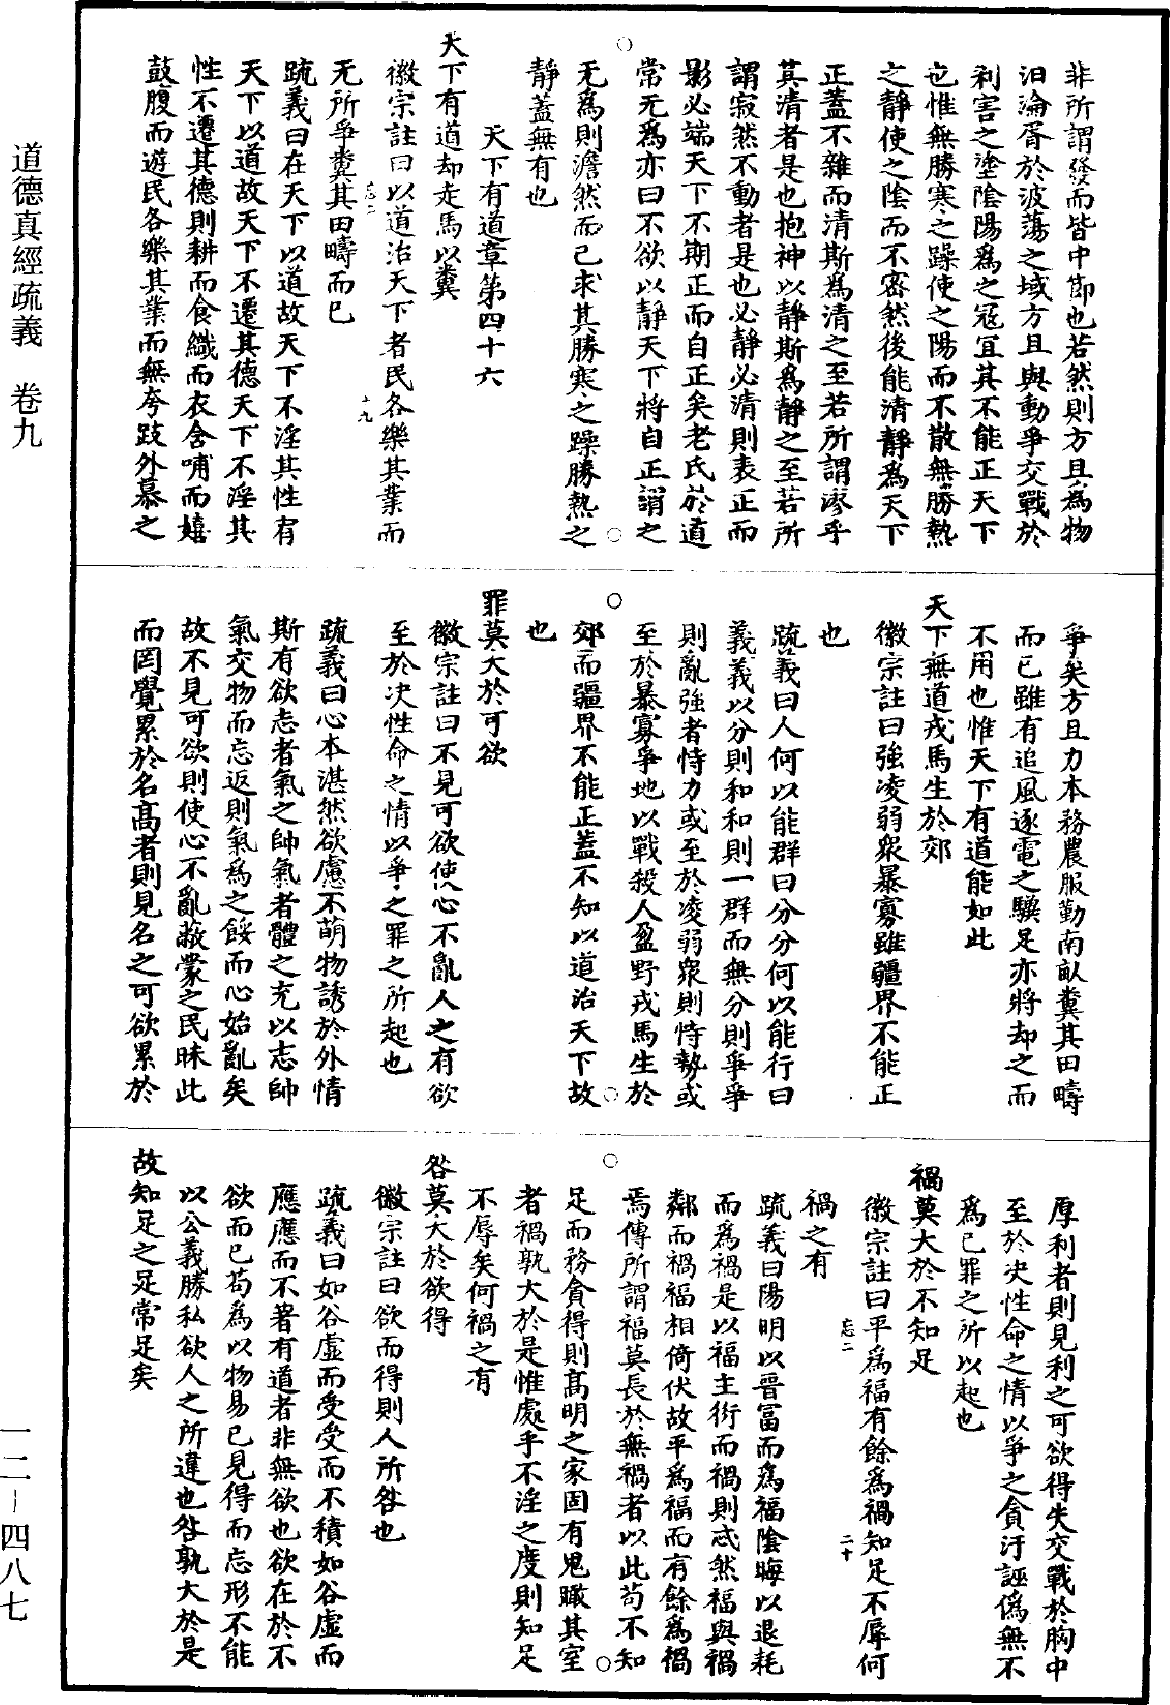 非所謂發而皆中節也若然則方且為物
汩淪胥於波蕩之域方且與動爭交戰於
利害之塗陰陽為之冦宜其不能正天下
也惟無勝寒之躁使之陽而不散無勝熱
之靜使之陰而不密然後能清靜為天下
正蓋不雜而清斯為清之至若所謂漻乎
其清者是也抱神以靜斯為靜之至若所
謂寂然不動者是也必靜必清則表正而
影必端天下不期正而自正矣老氏於道
常无為亦曰不欲以靜天下將自正謂之
无為則澹然而已求其勝寒之躁勝熱之
靜蓋無有也
天下有道章第四十六
天下有道却走馬以糞
徽宗註曰以道治天下者民各樂其業而
无所爭糞其田疇而已
疏義曰在天下以道故天下不淫其性宥
天下以道故天下不遷其德天下不淫其
性不遷其德則耕而食織而衣含哺而嬉
鼓腹而遊民各樂其業而無夸跂外慕之
爭矣方且力本務農服勤南畝糞其田疇
而已雖有追風逐電之驥足亦將却之而
不用也惟天下有道能如此
天下無道戎馬生於郊
徽宗註曰強凌弱衆暴寡雖疆界不能正
也
疏義曰人何以能群曰分分何以能行曰
義義以分則和和則一群而無分則爭爭
則亂強者恃力或至於凌弱衆則恃勢或
至於暴寡爭地以戰殺人盈野戎馬生於
郊而疆界不能正蓋不知以道治天下故
也
罪莫大於可欲
徽宗註曰不見可欲使心不亂人之有欲
至於决性命之情以爭之罪之所起也
疏義曰心本湛然欲慮不萌物誘於外情
斯有欲志者氣之帥氣者體之充以志帥
氣交物而忘返則氣為之餒而心始亂矣
故不見可欲則使心不亂蔽蒙之民昧此
而罔覺累於名高者則見名之可欲累於
厚利者則見利之可欲得失交戰於胸中
至於决性命之情以爭之貪汙誣僞無不
為已罪之所以起也
禍莫大於不知足
徽宗註曰平為福有餘為禍知足不辱何
禍之有
疏義曰陽明以晉冨而為福陰晦以退耗
而為禍是以福主衍而禍則忒然福與禍
鄰而禍福相倚伏故平為福而有餘為禍
焉傳所謂福莫長於無禍者以此苟不知
足而務貪得則高明之家固有鬼瞰其室
者禍孰大於是惟處乎不淫之度則知足
不辱矣何禍之有
咎莫大於欲得
徽宗註曰欲而得則人所咎也
疏義曰如谷虛而受受而不積如谷虛而
應應而不著有道者非無欲也欲在於不
欲而已苟為以物易己見得而忘形不能
以公義勝私欲人之所違也咎孰大於是
故知足之足常足矣
道德真經疏義　卷九
一二－四八七